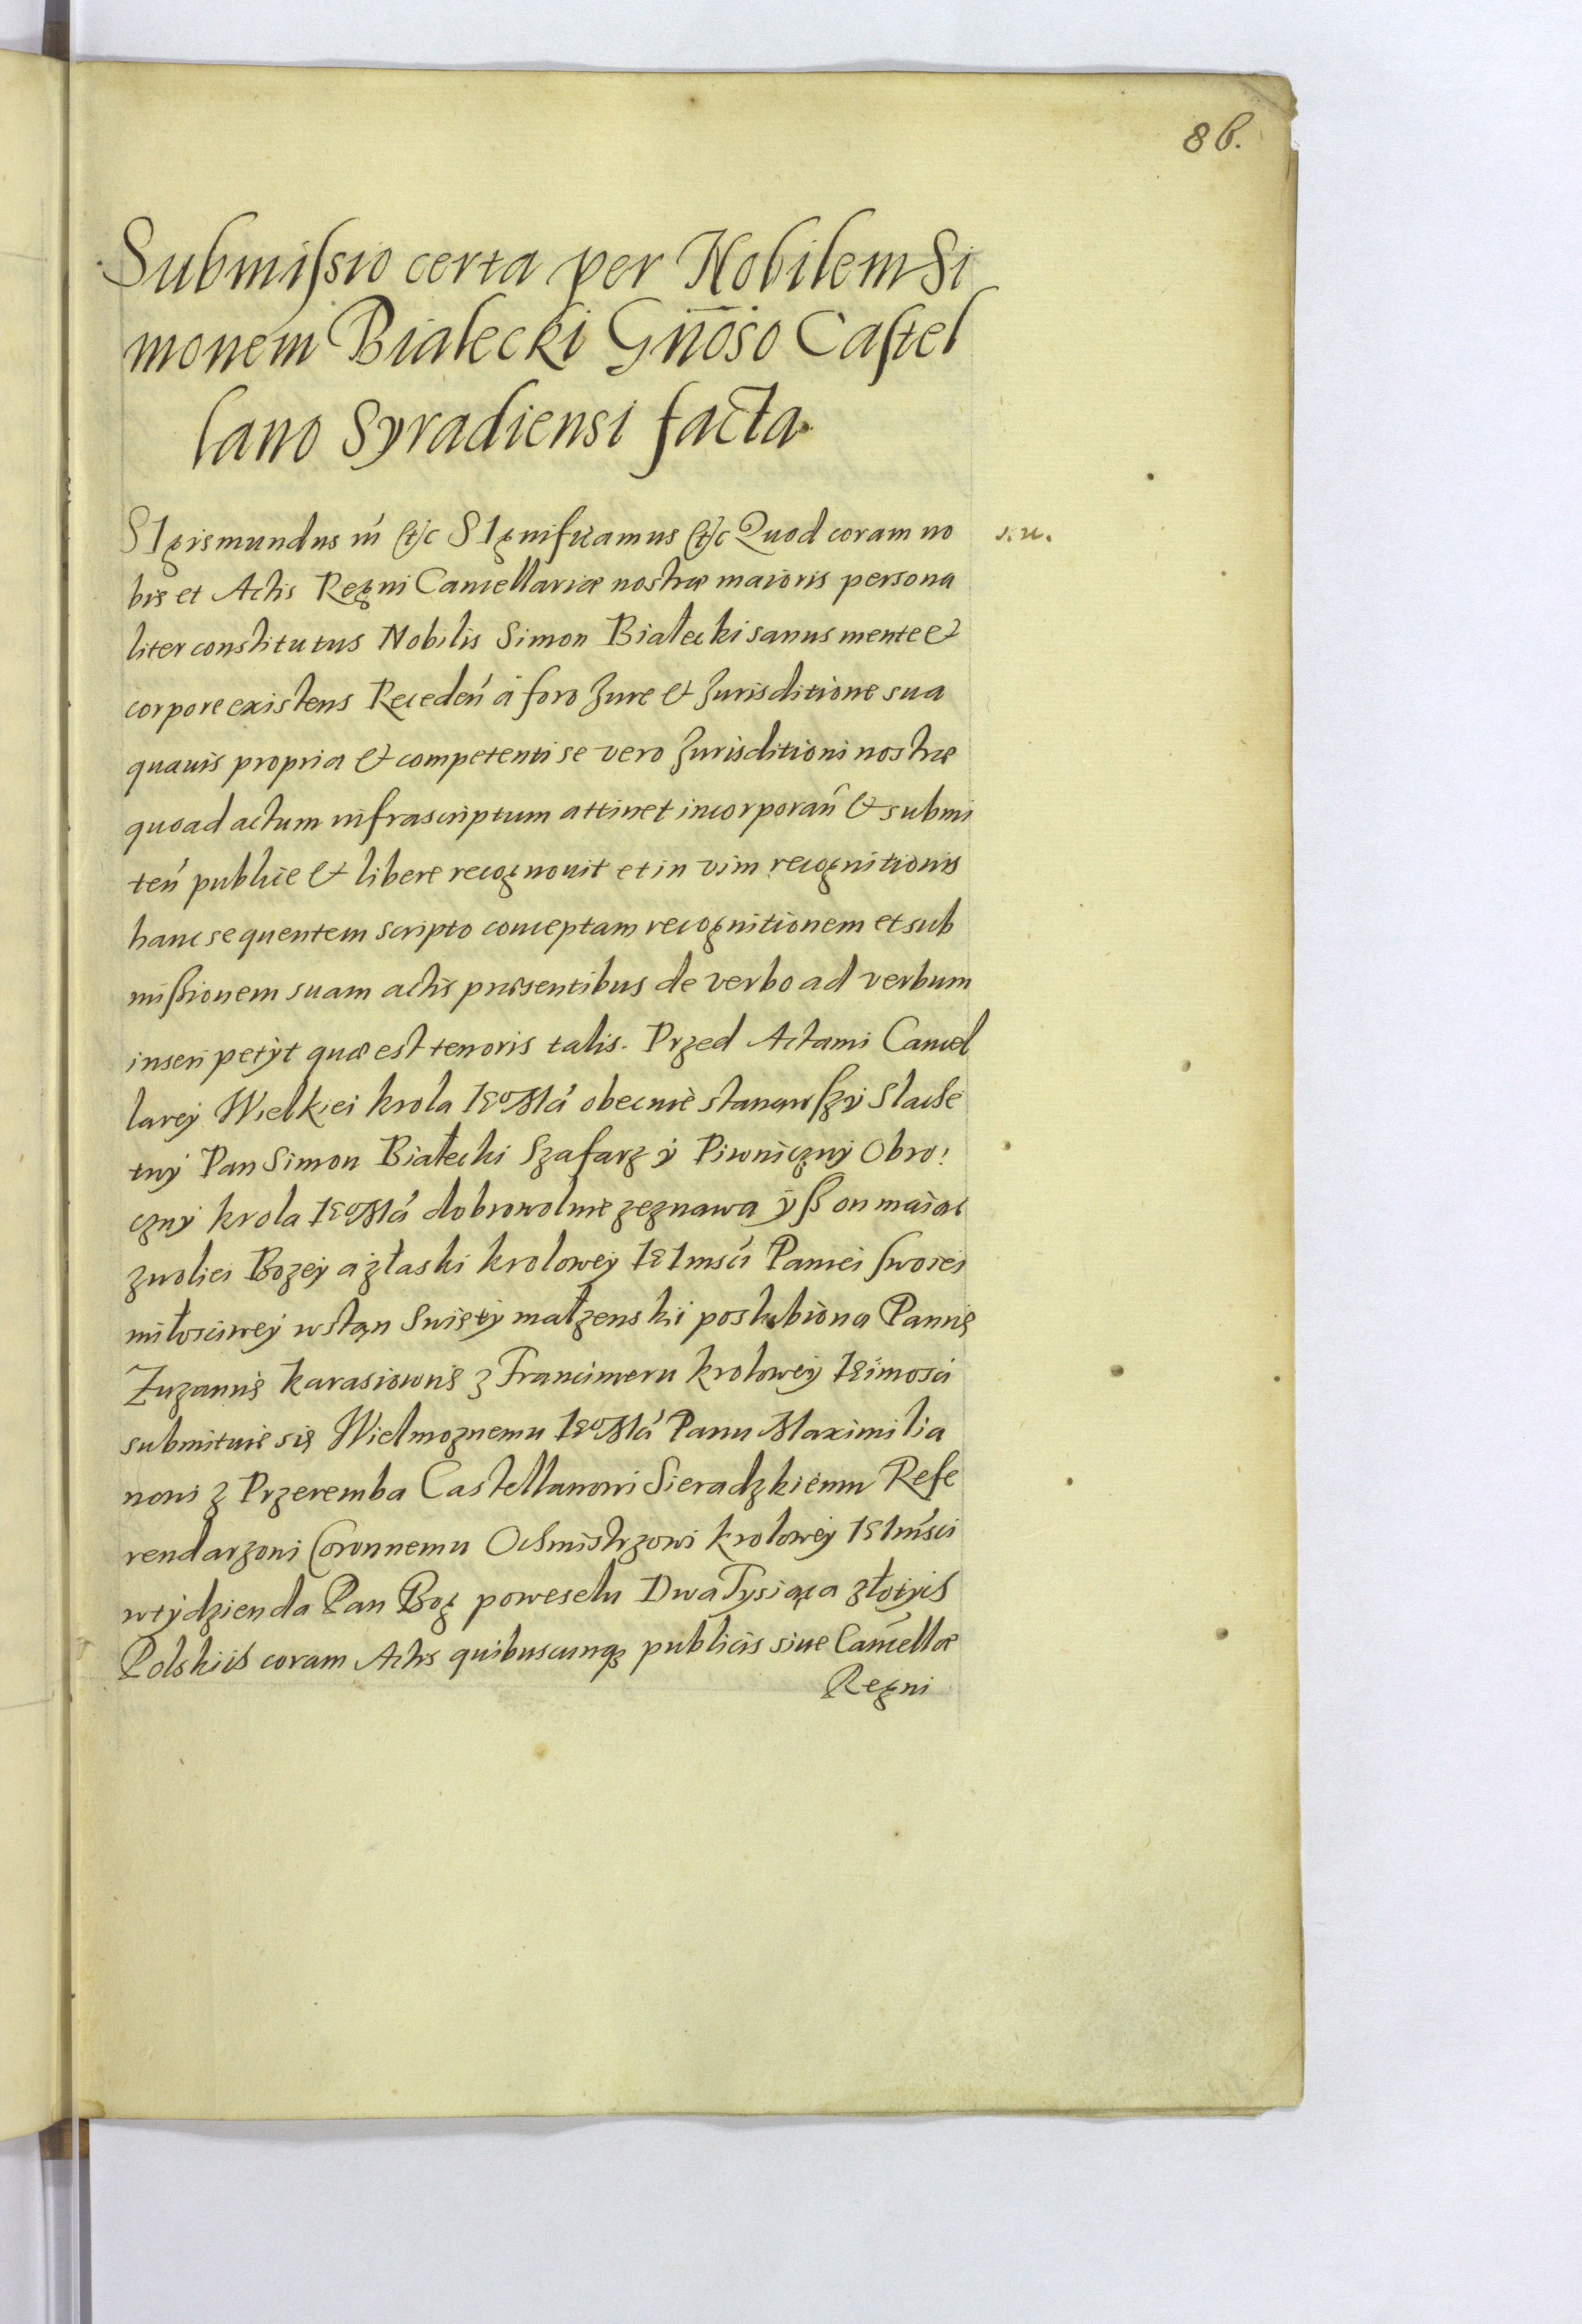 86.
Submiſsio certa per Nobilem Si
monem Białecki Gn̄oso Caſtel
lano Syradiensi facta.
SIgismundus iii etc SIgnificamus etc Quod coram no
s. n.
bis et Actis Regni Cancellariæ nostræ maioris persona
liter constitutus Nobilis Simon Białecki sanus mente et
corpore existens Receden̄ á foro Jure et Jurisditione sua
quavis propria et competenti se vero Jurisditioni nostræ
quoad actum infrascriptum attinet incorporan̄ et submi
ten̄ publice et libere recognouit et in vim recognitionis
hanc sequentem scripto conceptam recognitionem et sub
mißionem suam actis præsentibus de verbo ad verbum
inseri petÿt quæ est tenoris talis. Przed Actami Cancel
larеÿ Wielkiei krola JeoMći obecnie stanąwſzÿ Slache
tnÿ Pan Simon Białecki Szafarz ÿ Piwnicznÿ Obro:
cznÿ krola JeoMći dobrowolnie zeznawa ÿß on maiąc
zwoliei Bozeÿ a złaski kroloweÿ JeImsći Paniei ſwoiei
miłosciweÿ wstąn Swiętÿ małzenski poslubiona Pannę
Zuzannę karasiownę z Francimeru kroloweÿ Jeimosci
submituie się Wielmoznemu JeoMći Panu Maximilia
nowi z Przeremba Castellanowi Sieradzkiemu Refe
rendarzowi Coronnemu Ochmistrzowi kroloweÿ JeImsci
wtÿdzien da Pan Bog poweselu Dwa Tysiąca złotÿch
Polskich coram Actis quibuscunq publicis siue Cancellæ
Regni